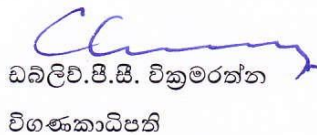 ඩබ්ලිව්.පී.සී. වික්‍රමරත්න
විගණකාධිපති